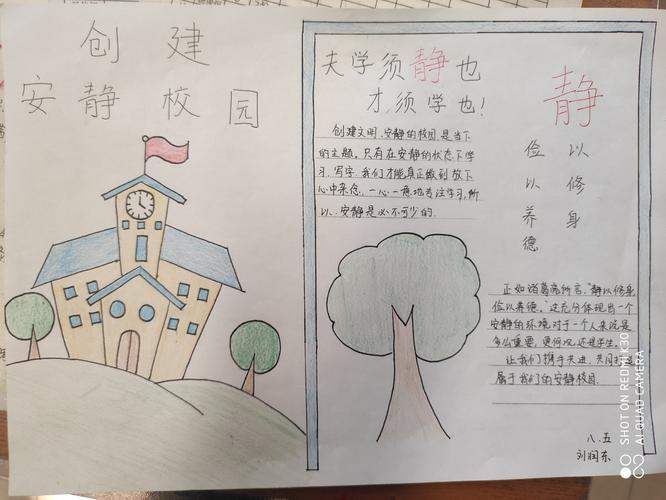 创建
安静校园
夫学须静也
才须学也!
创建文明、安静的校园是当下
的主题。只有在安静的状态下学
习、写字，我们才能真正做到放下
心中杂念，一心一意地专注学习，所
以，安静是必不可少的。
静
以修身
俭以养德
正如诸葛亮所言，“静以修身，
俭以养德。”这充分体现出一个
安静的环境对于一个人来说是
多么重要，更何况还是学生。
让我们携手共进，共同打造
属于我们的安静校园。
八.五
刘润东
SHOT ON REDMI K30
AI QUAD CAMERA